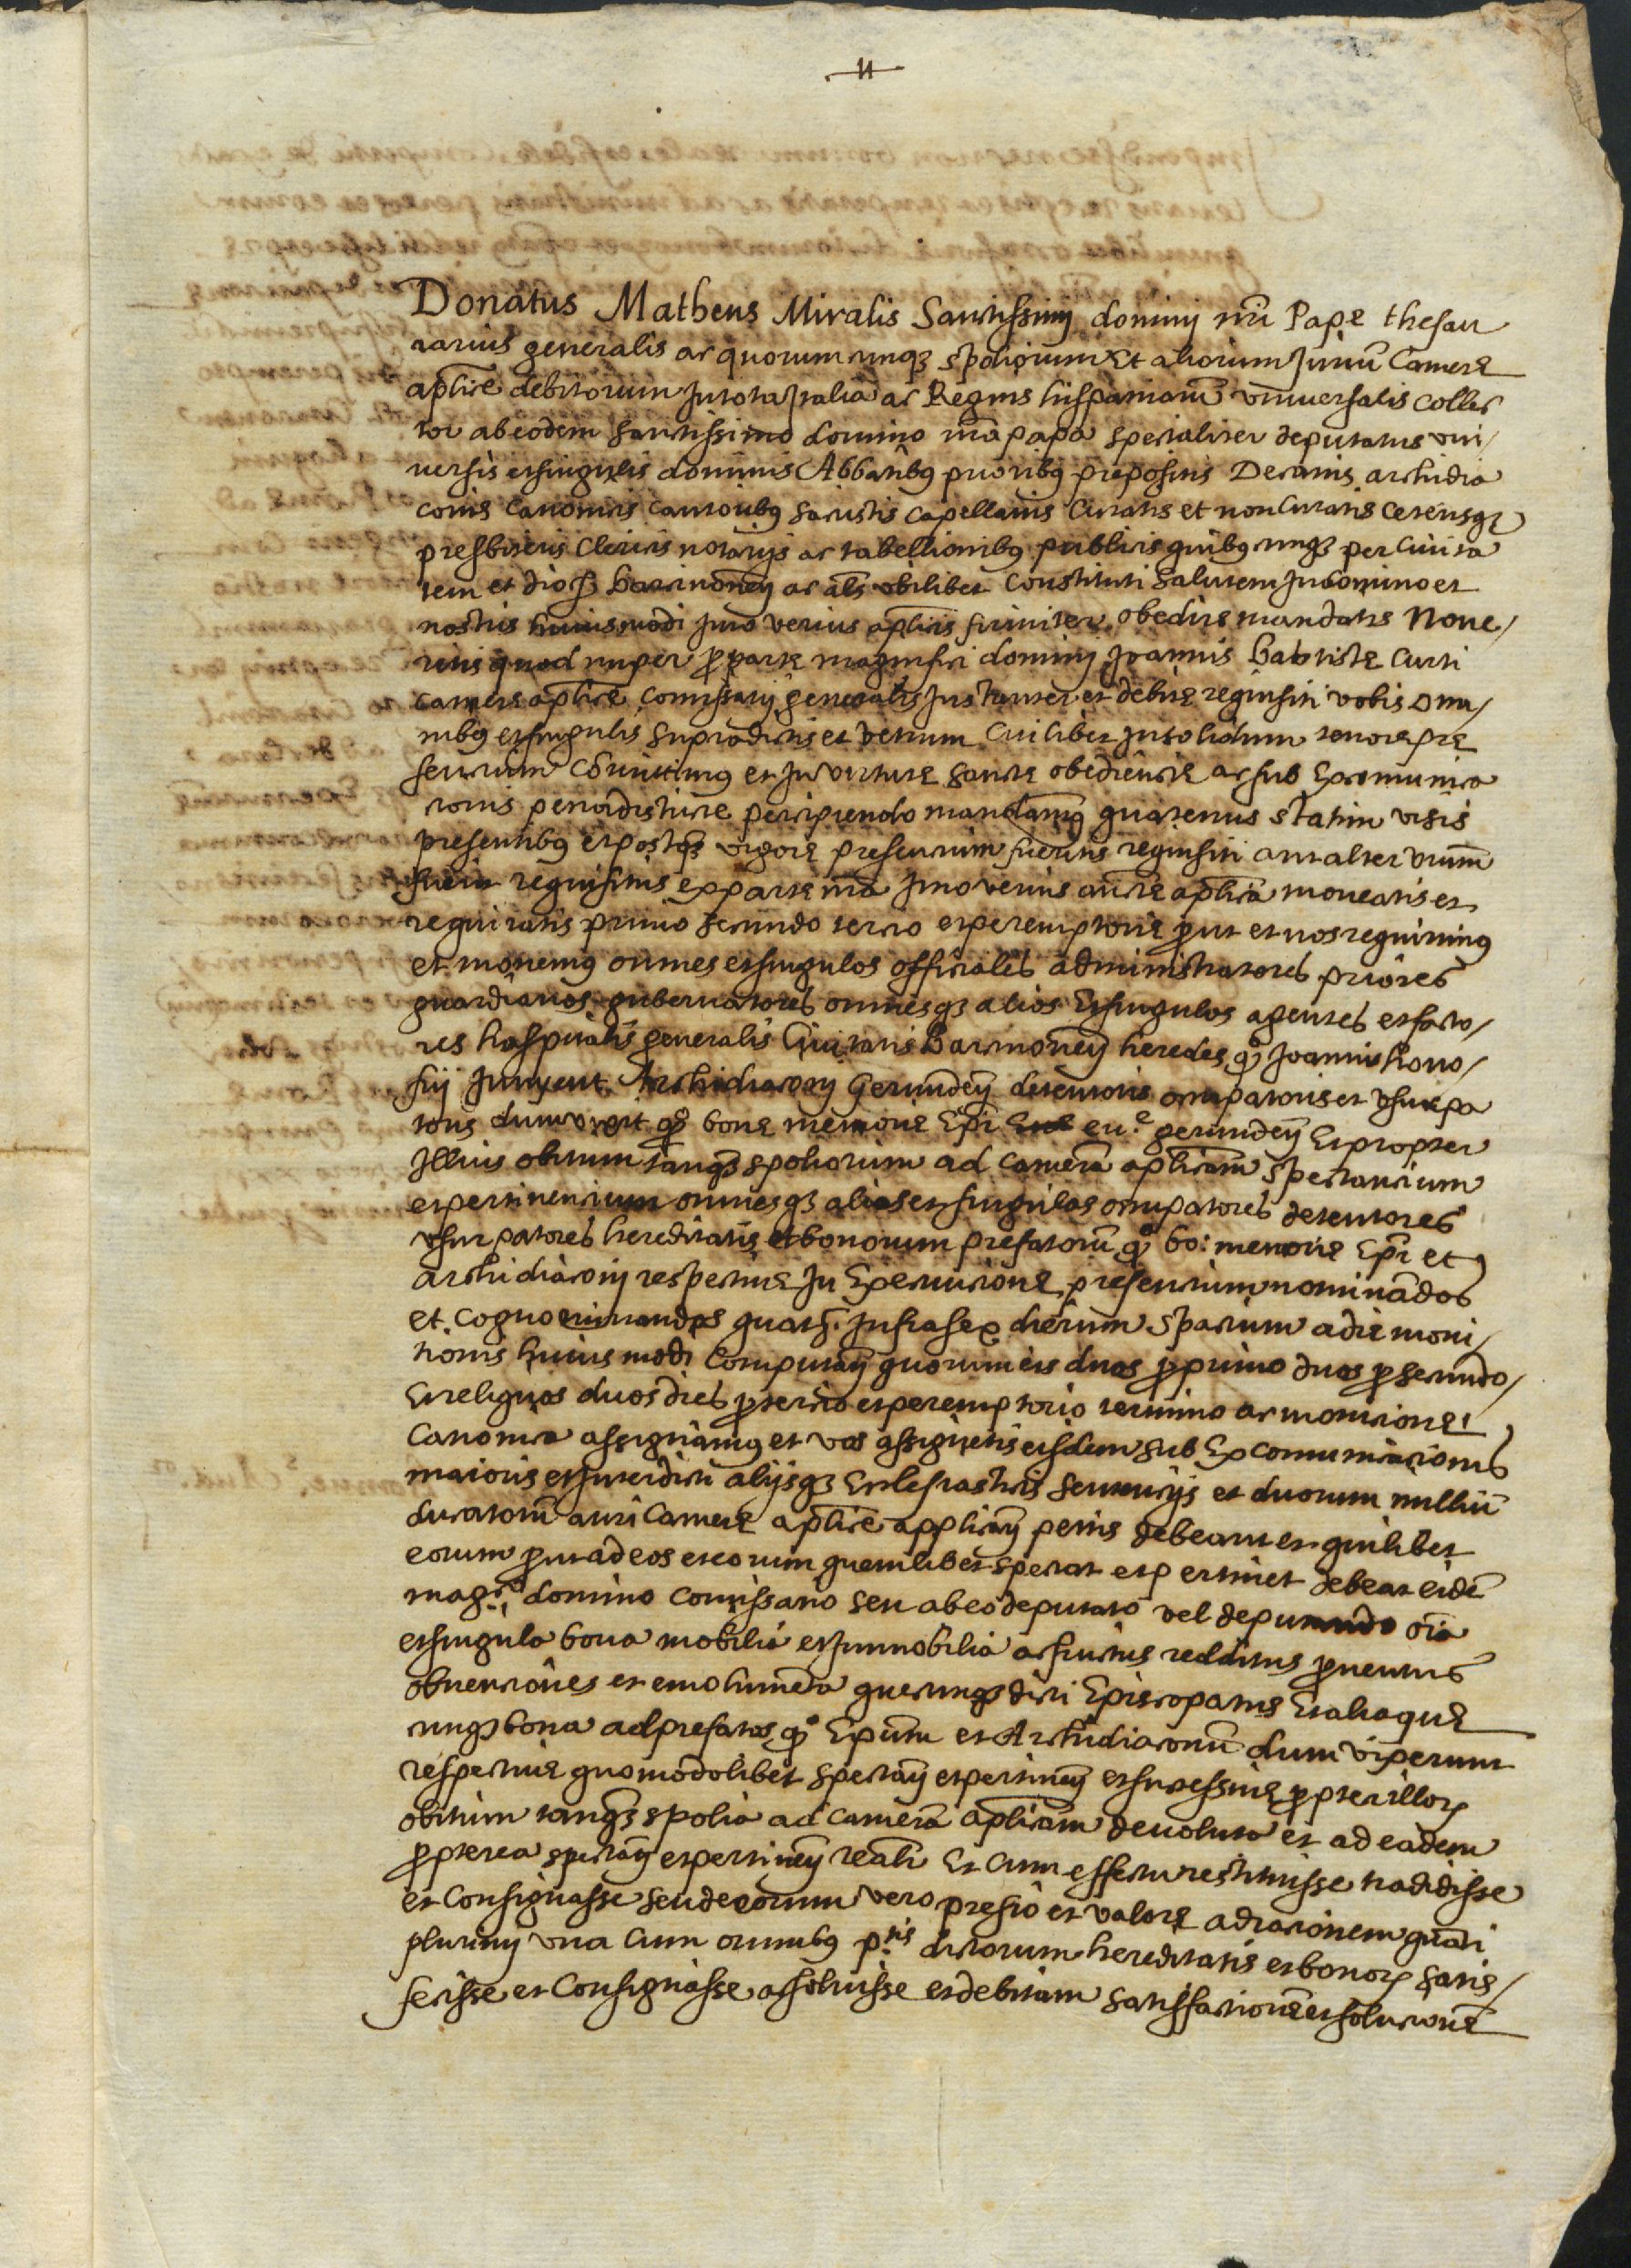 11
Donatus Matheus Miralis Sanctissimi dominj nrĩ Pape thesau
rarius generalis ac quorumcunqꝫ spoliorum Et aliorum Juriũ Camerę
aplice debitorum In tota Italia ac Regnis hispaniarũ vniuersalis collec
tor ab eodem sanctissimo domino nr̃o papa specialiter deputatus vni/
uersis et singulis dominis Abbatibꝫ prioribꝫ prepositis Decanis archidia
conis Canonicis cantoribꝫ sacristis capellanis Curatis et non Curatis ceterisqꝫ
presbiteris Clericis notarijs ac tabellionibꝫ publicis quibꝫcunqꝫ per Ciuita
tem et dioc̃ barcinoneñ ac als̃ vbilibet Constitutis salutem In domino et
nostris huiusmodi Imo verius aplicis firmiter obedire mandatis Noue/
ritis quod nuper ꝓ parte magnifici dominj Joannis baptistę Curti
camerę aplice comissarij generalis Instanter et debitę requisiti vobis om/
nibꝫ et singulis supradictis et vestrum Cuilibet In solidum tenorę prę
sencium Cõmittimꝫ et In virtutę sanctę obediencię ac sub Excomunica
cionis pena districte precipiendo mandamꝫ quatenus statim visis
presentibꝫ et postqꝫ vigorę presencium fueritis requisiti aut alter vr̃um
fuerit requisitus ex partę nr̃a Imo verius aucte aplica moneatis et
requiratis primo secundo tercio et peremptorię ꝓut et nos requirimꝫ
et monemꝫ omnes et singulos officiales administratores priores
guardianos gubernatores omnesqꝫ alios Et singulos agentes et facto/
res hospitalis generalis Ciuitatis Barcinoneñ heredes qꝫ Joannis hono/
frij Junyent Archidiaconj Gerundeñ detentoris occupatoris et vsurpa
toris dum vixit qꝫ bonę memorię Epĩ gerundeñ Et propter
Illius obitum tanqꝫ spoliorum ad camerã aplicam spectancium
et pertinencium omnesqꝫ alios et singulos occupatores detentores
vsurpatores hereditatis et bonorum prefatorũ qꝫ bo: memorię Epĩ et
Archidiaconj respectiuę In Execucionę presencium nominãdos
et cognominandos quatꝫ Infra sex dierum spacium a die moni/
tionis huiusmodi Computañ quorum eis duos ꝓ primo duos ꝓ secundo/
Et reliquos duos dies ꝓ tercio et peremptorio termino ac monicionę
canonica assignamꝫ et vos assignetis eisdem sub Excomunicacionis
maioris et Interdicti alijsqꝫ Ecclesiasticis sentencijs et duorum milliũ
ducatorũ auri Camerę aplice applicañ penis debeant et quilibet
eorum ꝓut ad eos et eorum quemlibet spectat et pertinet debeat eidẽ
mag.co domino comissario seu ab eo deputato vel deputando oĩa
et singula bona mobilia et Immobilia ac fructus redditus ꝓuentus
obuenciones et emolumẽta quecunqꝫ dicti Episcopatus Et aliaquę
cunqꝫ bona ad prefatos qꝫ Epũm et Archidiaconũ dum vixerunt
respectiuę quomodolibet spectañ et pertineñ et successiuę ꝓpter illoꝝ
obitum tanqꝫ spolia ad camerã aplicam deuoluta et ad eadem
ꝓpterea spectañ et pertineñ realr̃ Et cum effectu restituisse tradidisse
et Consignasse seu de eorum vero presio et valorę ad racionem quãti
plurimj vna Cum omnibꝫ p.tis dictorum hereditatis et bonoꝝ satis/
fecisse et Consignasse ac soluisse et debitam satisfactionẽ et solucionẽ